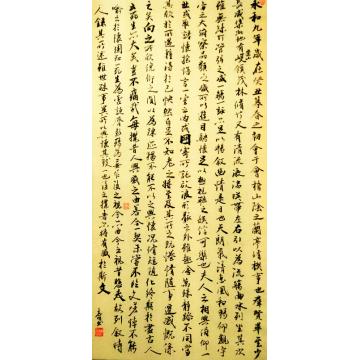 永和九年歲在癸丑暮春之初會于會稽山陰之蘭亭脩稧事也群賢畢至少
長咸集此地有峻領茂林脩竹又有清流激湍暎帶左右引以為流觴曲水列坐其次
雖無絲竹管弦之盛一觴一詠亦足以暢敘幽情是日也天朗氣清惠風和暢仰觀宇
宙之大俯察品類之盛所以遊目騁懷足以極視聽之娛信可樂也夫人之相與俯仰一
世或取諸懷抱悟言一室之內或因寄所託放浪形骸之外雖趣舍萬殊靜躁不同當
其欣於所遇暫得於己快然自足不知老之將至及其所之既惓情隨事遷感慨係
之矣向之所欣俛仰之間以為陳迹猶不能不以之興懷況脩短隨化終期於盡古人
云死生亦大矣豈不痛哉每攬昔人興感之由若合一契未嘗不臨文嗟悼不能
喻之於懷固知一死生為虛誕齊彭殤為妄作後之視今亦由今之視昔悲夫故列敘時
人錄其所述雖世殊事異所以興懷其致一也後之攬者亦將有感於斯文